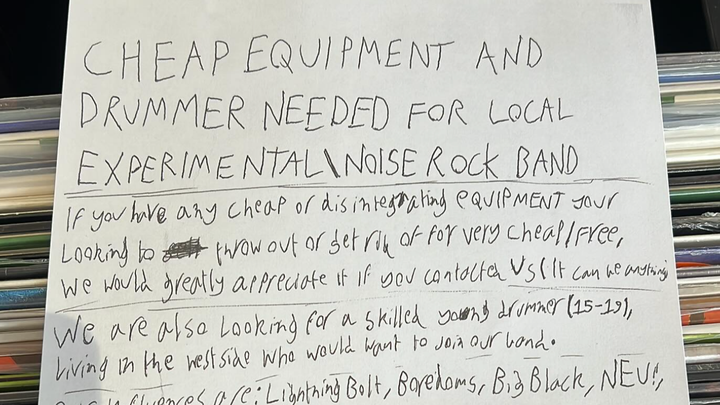 CHEAP EQUIPMENT AND
DRUMMER NEEDED FOR LOCAL
EXPERIMENTAL\NOISE ROCK BAND
If you have any cheap or disintegrating EQUIPMENT your
Looking to throw out or get rid of for very cheap/free,
we would greatly appreciate it if you contacted Us (It can be anything
We are also looking for a skilled young drummer (15-19),
living in the westside who would want to join our band.
are: Lightning Bolt, Boredoms, Big Black, NEU!,